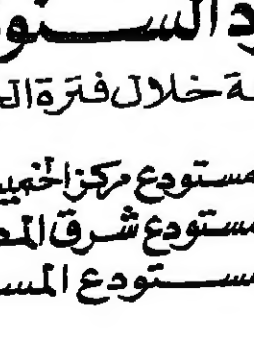 د السنو
ـة خلال فترة الـ
مستودع مركز الخميـ
مستودع شرق المـ
مستودع المسـ